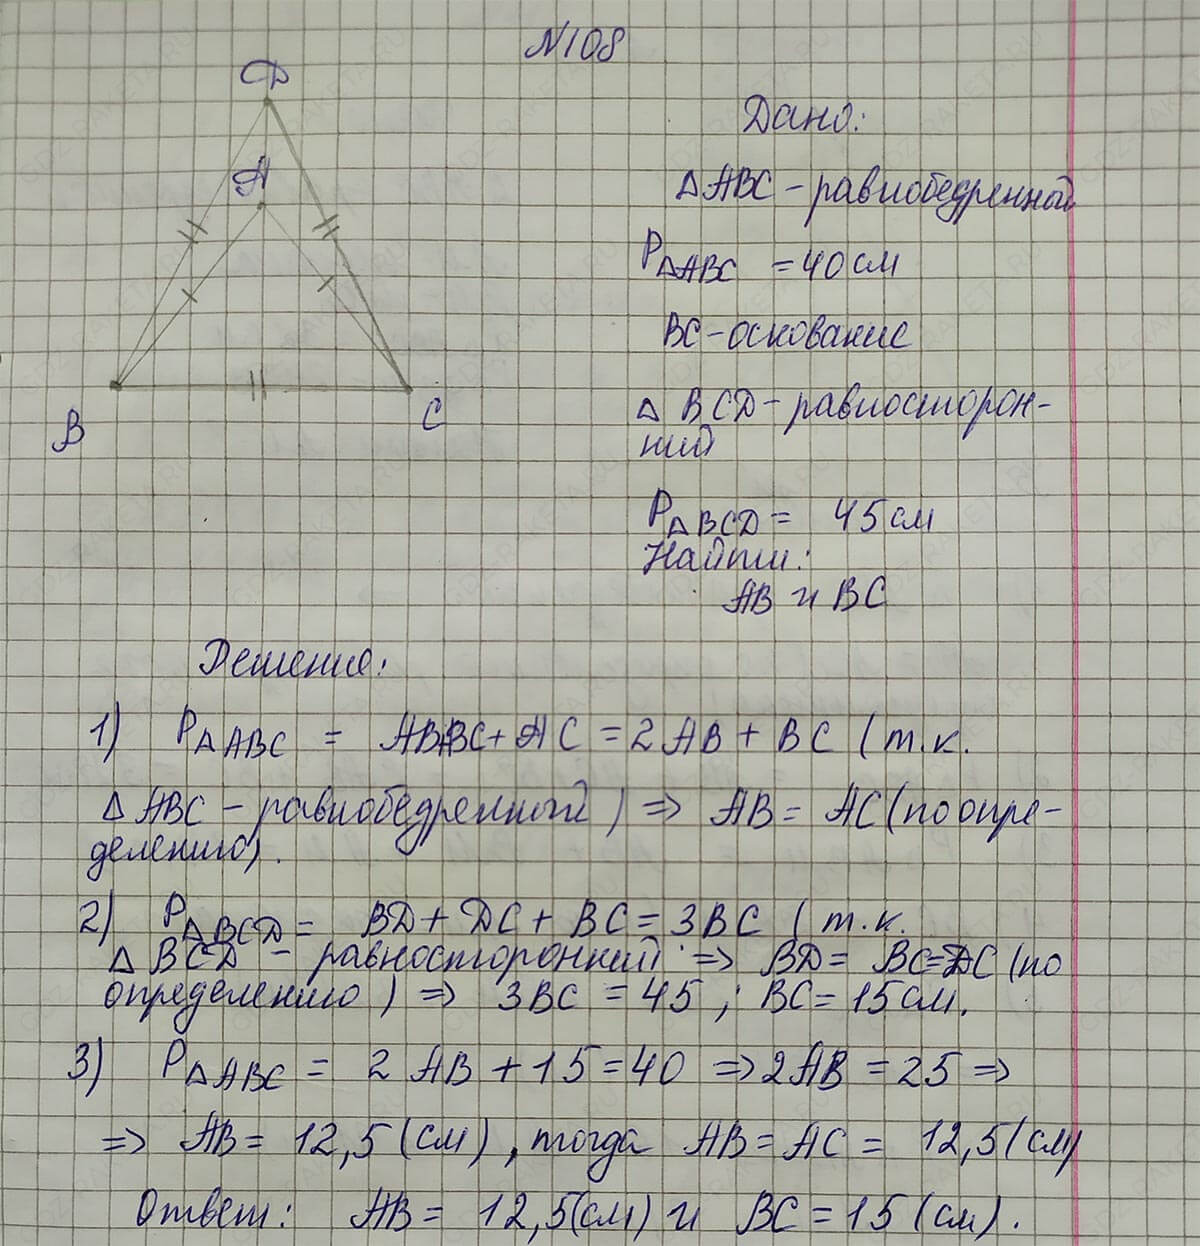 №108
D
A
B
C
Дано:
△ABC – равнобедренный
P△ABC = 40 см
BC – основание
△ BCD – равносторон-
ний
P△BCD = 45 см
Найти:
AB и BC
Решение:
1) P△ABC = AB+BC+AC = 2AB + BC (т.к.
△ABC – равнобедренный) => AB = AC (по опре-
делению).
2) P△BCD = BD + DC + BC = 3BC (т.к.
△BCD – равносторонний => BD = BC = DC (по
определению) => 3BC = 45; BC = 15 см.
3) P△ABC = 2AB + 15 = 40 => 2AB = 25 =>
=> AB = 12,5 (см), тогда AB = AC = 12,5 (см)
Ответ: AB = 12,5(см) и BC = 15 (см).